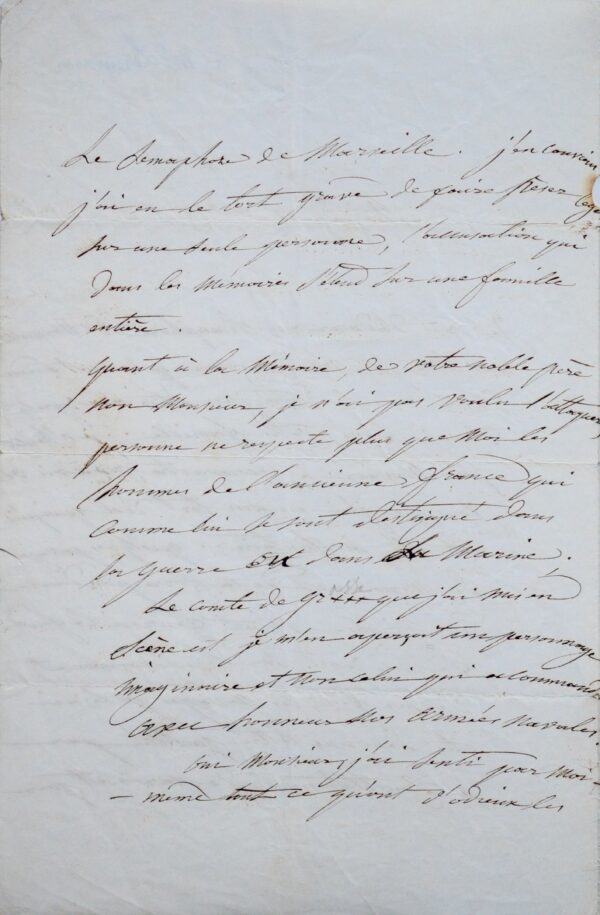 Le Semaphore de Marseille. j'en conviens
j'ai eu le tort grave de faire peser
sur une seule personne, l'accusation qui
dans les Mémoires s'étend sur une famille
entière.
quant à la Mémoire, de votre noble père
non Monsieur, je n'ai pas voulu l'attaquer,
personne ne respecte plus que Moi les
hommes de l'ancienne france qui
comme lui se sont distingué dans
la guerre ou dans la Marine.
Le comte de Gr*** que j'ai mis en
Scène est je m'en aperçoit un personnage
imaginaire et non celui qui a commandé
avec honneur nos armées navales.
oui Monsieur, j'ai senti par Moi-
-même tout ce qu'ont d'odieux les